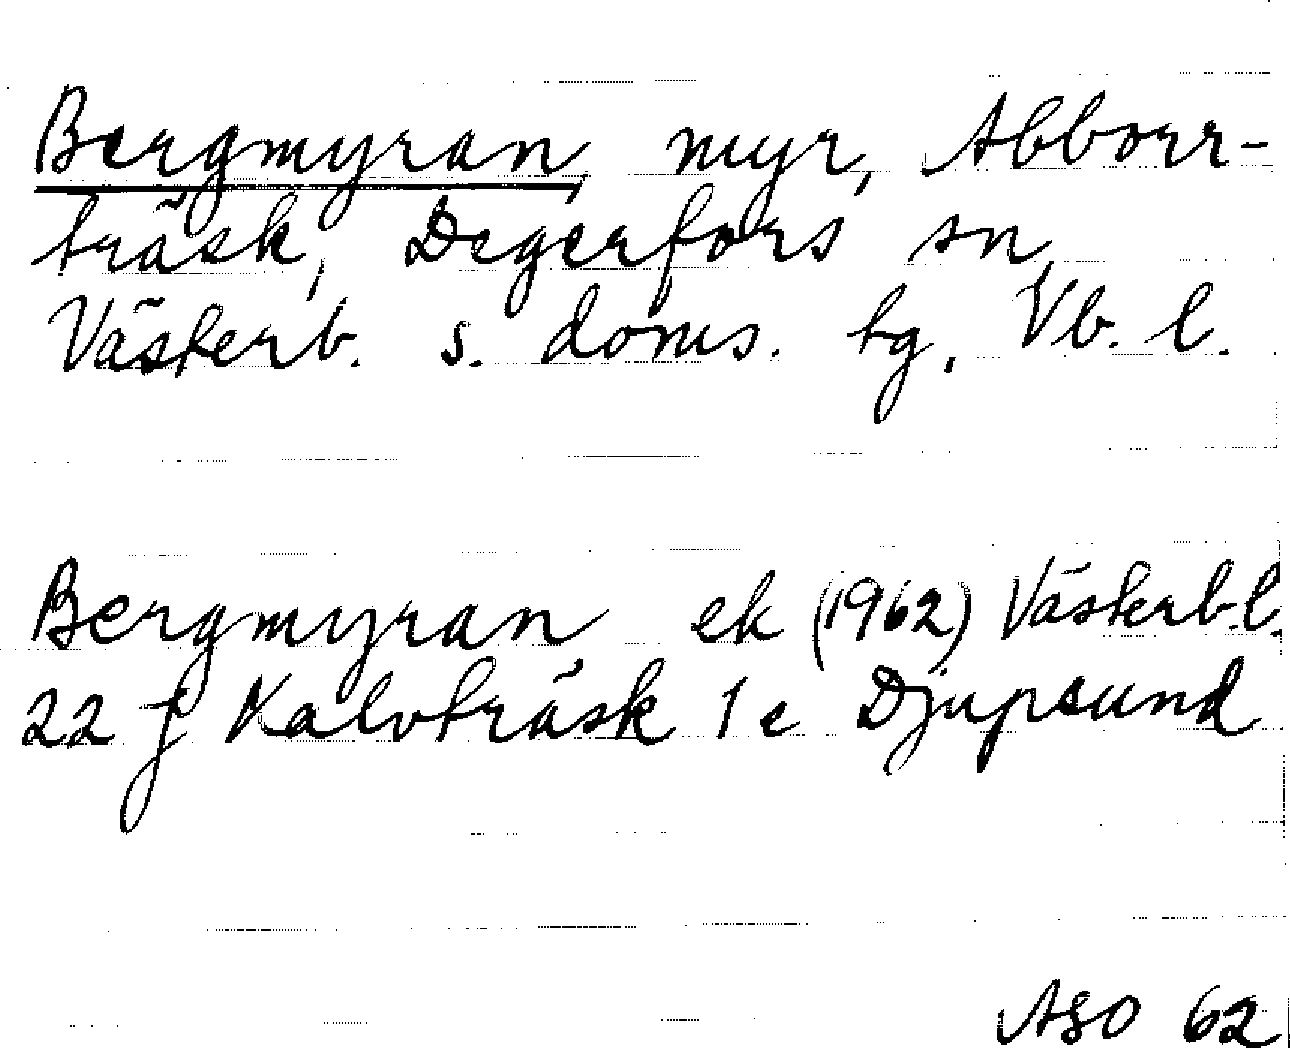 Bergmyran, myr, Abborr-
träsk, Degerfors sn,
Västerb. s. doms. tg, Vb. l.
Bergmyran ek (1962) Västerb.l.
22 J Kalvträsk 1 e Djupsund
ASO 62